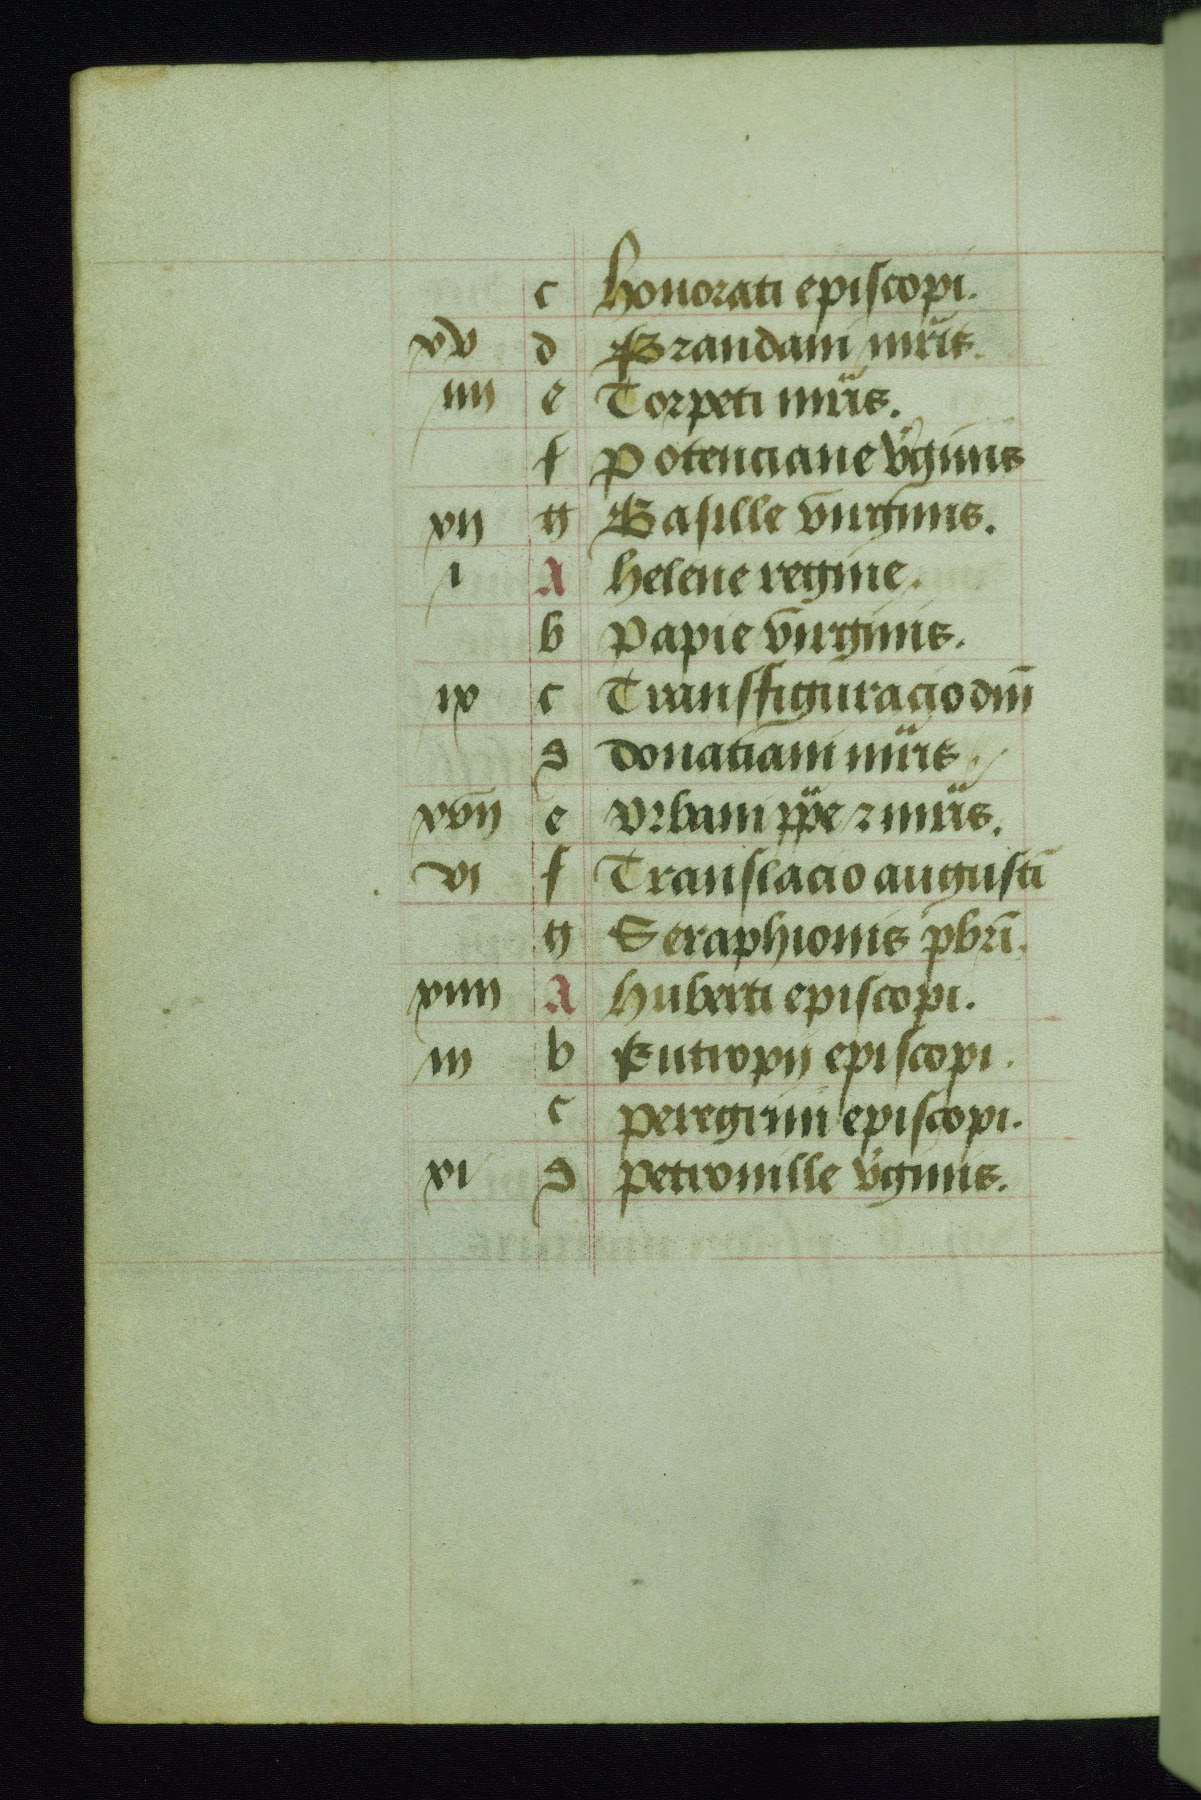 c honorati episcopi.
xv d Brandani mr̃is.
iiij e Torpeti mr̃is.
f Potenciane v̓ginis
xij g Basille virginis.
i A helene regine.
b Papie virginis.
ix c Transffiguracio dnĩ
d donatiani mr̃is.
xvij e Vrbani ppe ⁊ mr̃is.
vi f Translacio augustĩ
g Seraphionis pbrĩ.
xiiij A huberti episcopi.
iij b Eutropij episcopi.
c peregrini episcopi.
xi d petronille v̓ginis.